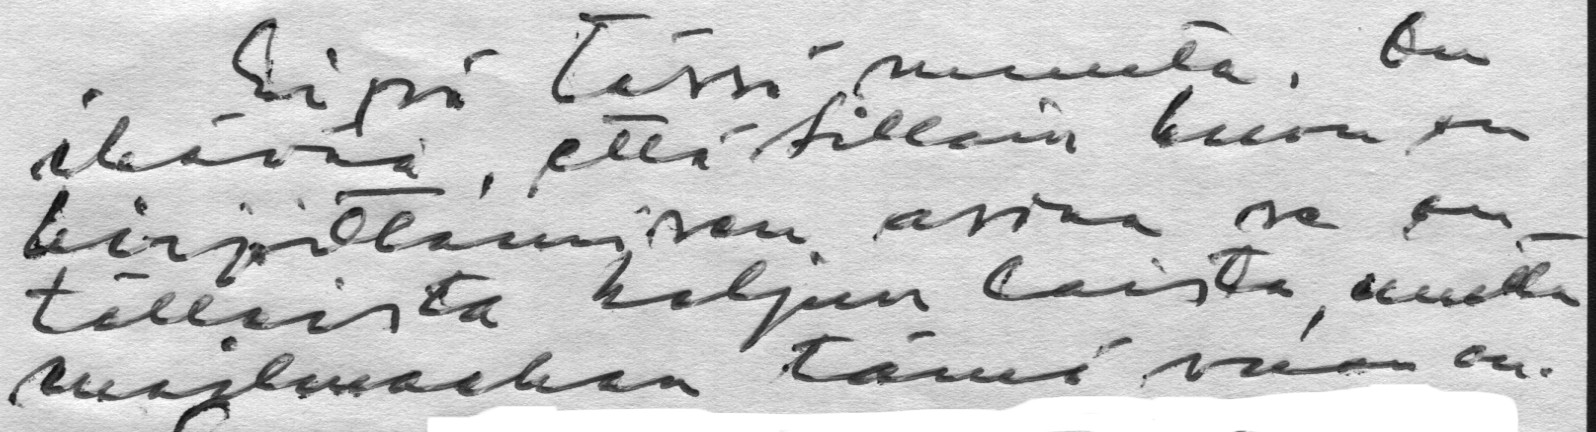 Eipä tässä muuta. On
ikävää, että silloin kuin on
kirjoittamisen asiaa se on
tällaista kaljun laista, mutta
maailmanahan tämä vaan on.